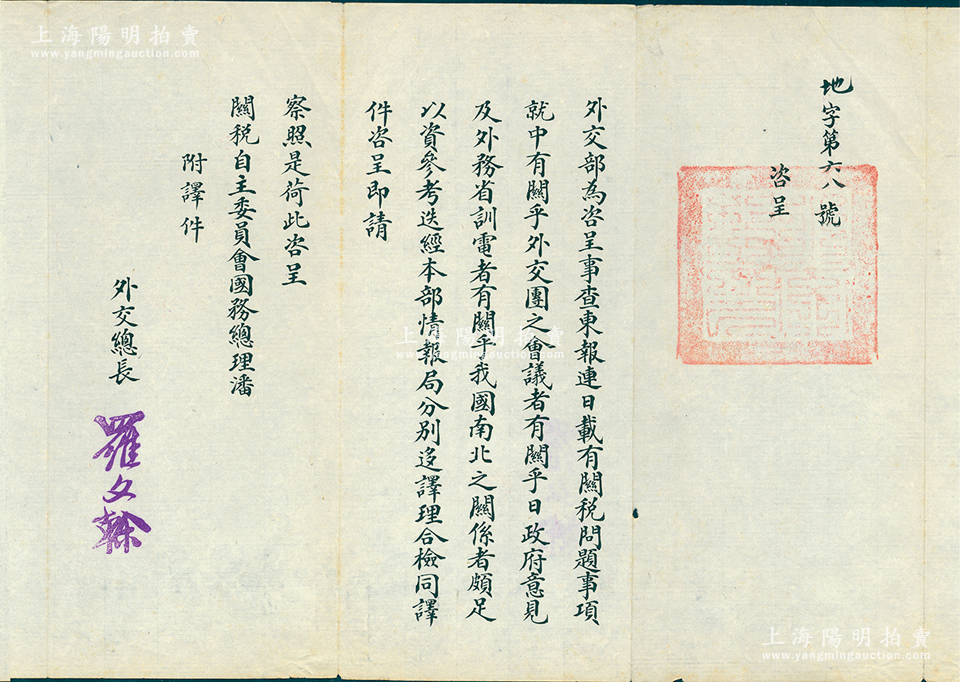 地字第六八號
咨呈
外交部為咨呈事查東報連日載有關税問題事項
就中有關乎外交團之會議者有關乎日政府意見
及外務省訓電者有關乎我國南北之關係者頗足
以資參考迭經本部情報局分别迻譯理合檢同譯
件咨呈即請
察照是荷此咨呈
關税自主委員會國務總理潘
附譯件
外交總長
羅文榦
上海陽明拍賣
www.yangmingauction.com
上海陽明拍賣
www.yangmingauction.com
上海陽明拍賣
www.yangmingauction.com